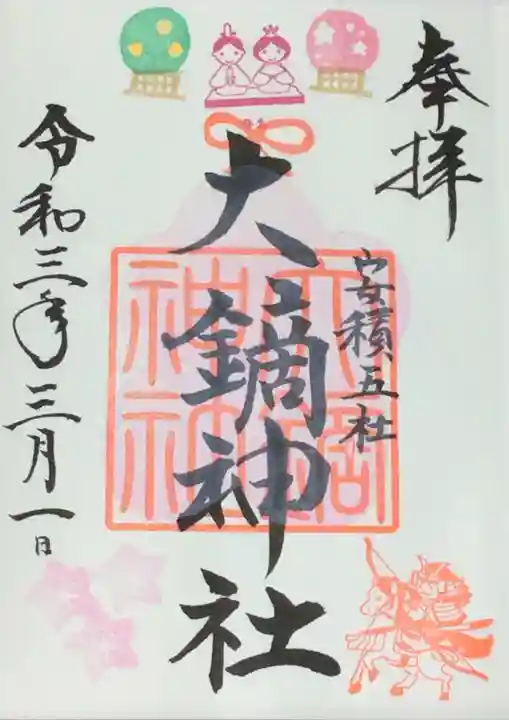 奉拝
安積五社
大鏑神社
令和三年三月一日